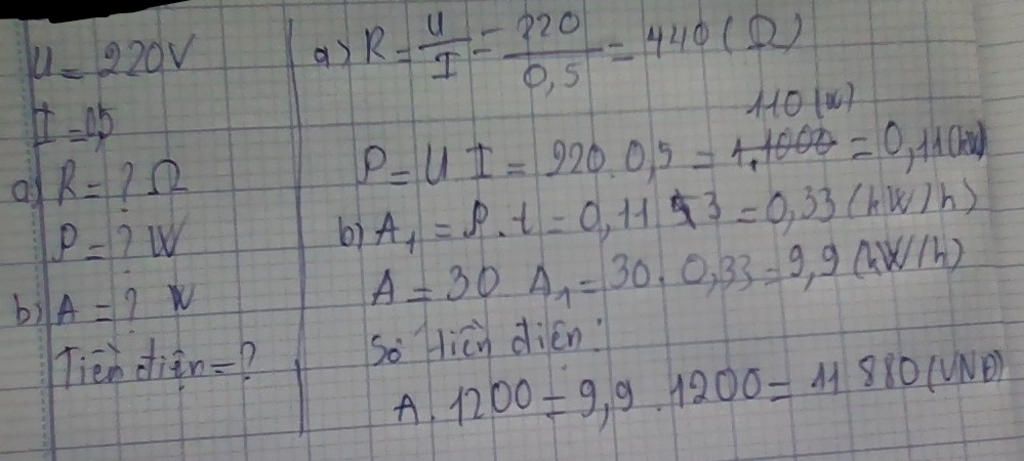 U = 220V
I = 0,5
a) R = ? Ω
P = ? W
b) A = ? W
Tiền điện = ?
a) R = U/I = 220/0,5 = 440 (Ω)
110 (W)
P = U I = 220. 0,5 = 1.1000 = 0,11 (kW)
b) A₁ = P. t = 0,11 . 3 = 0,33 (kW/h)
A = 30 A₁ = 30. 0,33 = 9,9 (kW/h)
Số tiền điện:
A. 1200 = 9,9 . 1200 = 11 880 (VNĐ)